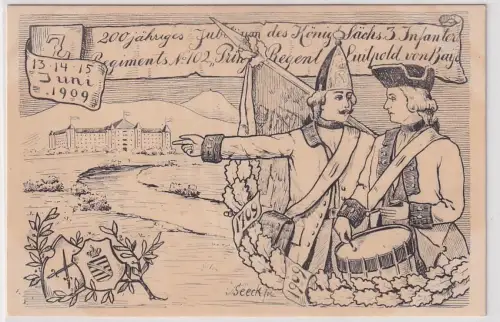 200 jähriges Jubiläum des Königl. Sächs. 3. Infanter
Regiments No 102 „Prinz Regent Luitpold von Bay
13·14·15
Juni
1909
1709
1909